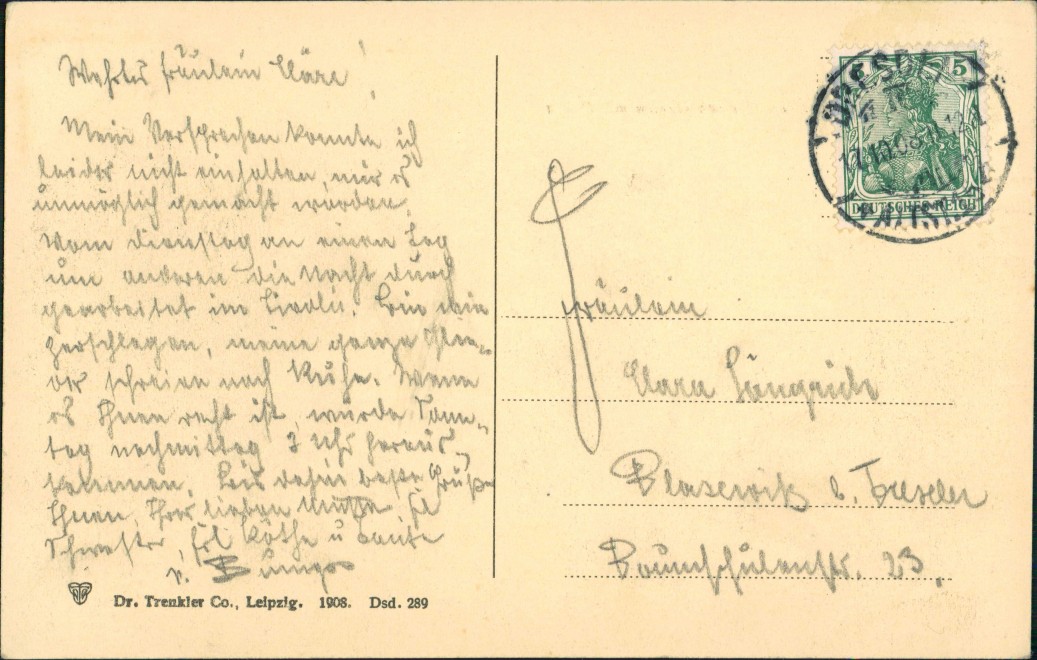 Wertes Fräulein Cläre!
Mein Versprechen konnte ich
leider nicht einhalten, mir es
unmöglich gemacht worden,
vom Dienstag an einen Tag
um anderen die Nacht durch
gearbeitet im Tivoli. Bin wie
zerschlagen, meine ganze Glie-
der schreien nach Ruhe. Wenn
es Ihnen recht ist, würde Sonn-
tag nachmittag 3 Uhr heraus-
kommen. Bis dahin beste Grüße
Ihnen, Ihrer lieben Mutter
Schwester, Frl Käthe u
v.
Dr. Trenkler Co., Leipzig. 1908. Dsd. 289
DRESDEN
ALTST.
5 5
DEUTSCHES REICH
Fräulein
Clara
Blasewitz b. Dresden
Baumschulenstr. 23.